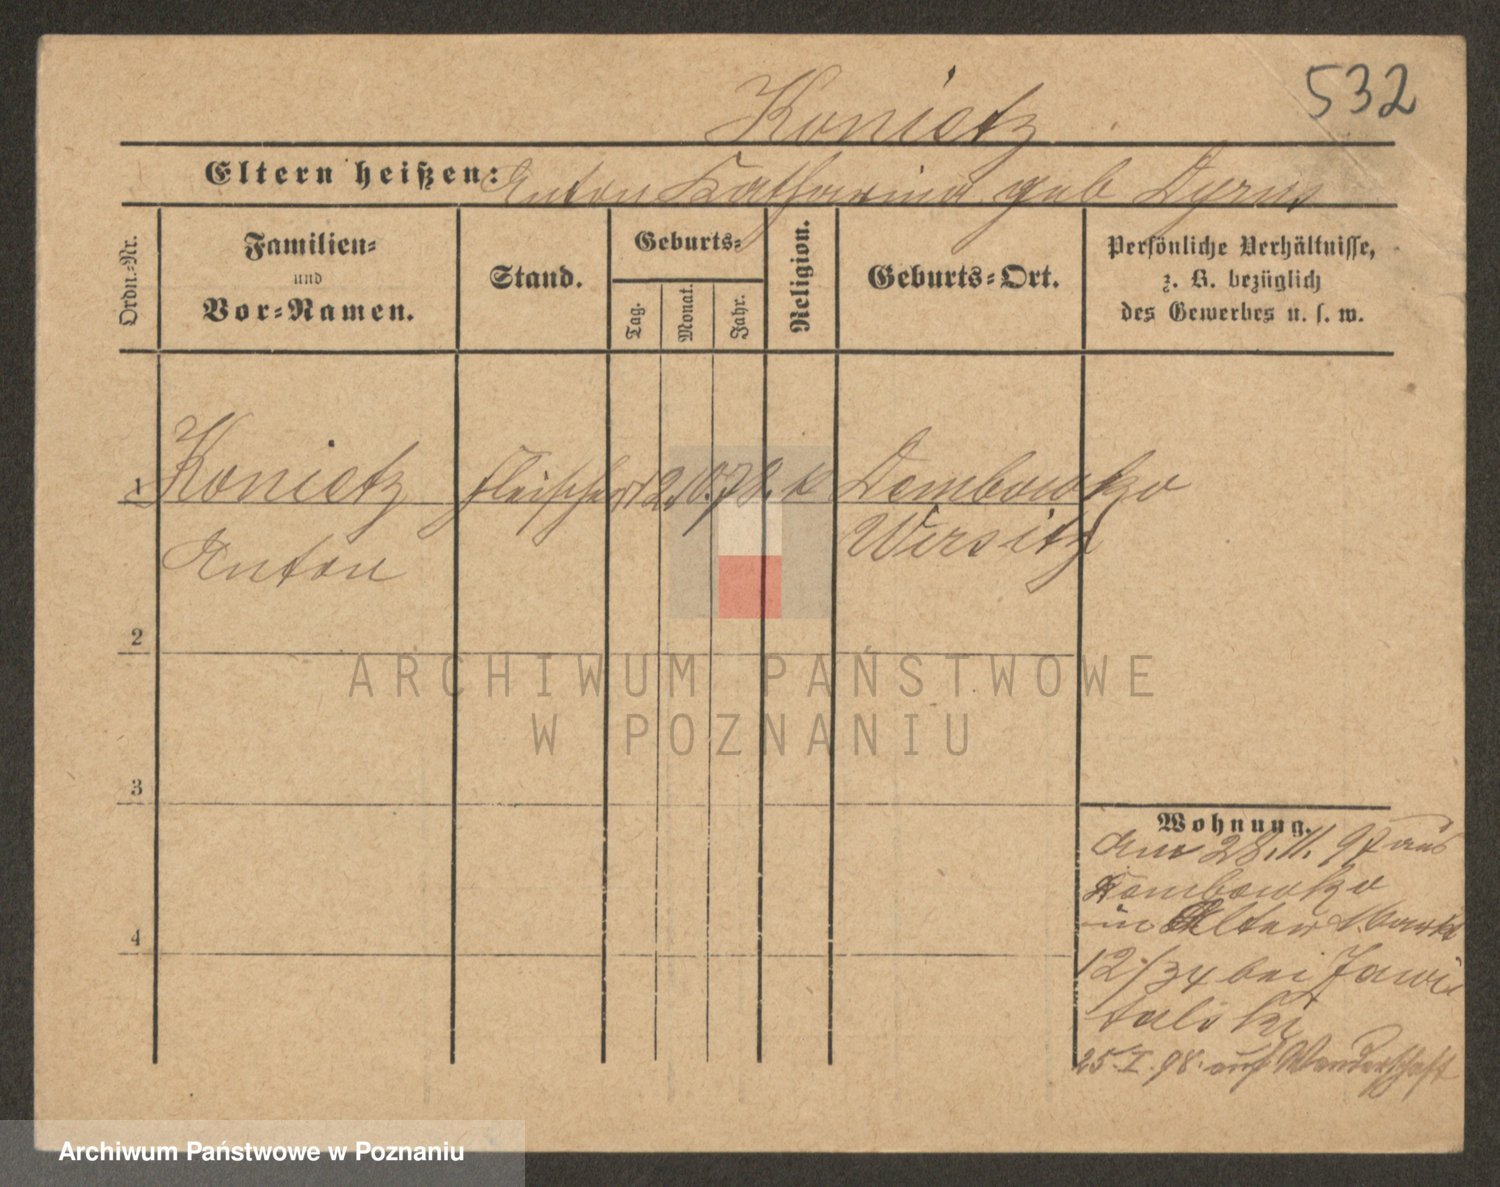 532
Konietz
Eltern heißen: Anton Katharina geb Dyrus
Ordn.-Nr.
Familien-
und
Vor-Namen.
Stand.
Geburts-
Tag.
Monat.
Jahr.
Religion.
Geburts-Ort.
Persönliche Verhältnisse,
z. B. bezüglich
des Gewerbes u. s. w.
1 Konietz Fleischer 12. 10. 78. k Dembowko
Anton Wirsitz
2
3
4
Wohnung.
am 28. 11. 97 aus
Dombowko
in Alter Markt
12/34 bei
25. I. 98. auf Wanderschaft
ARCHIWUM PAŃSTWOWE
W POZNANIU
Archiwum Państwowe w Poznaniu